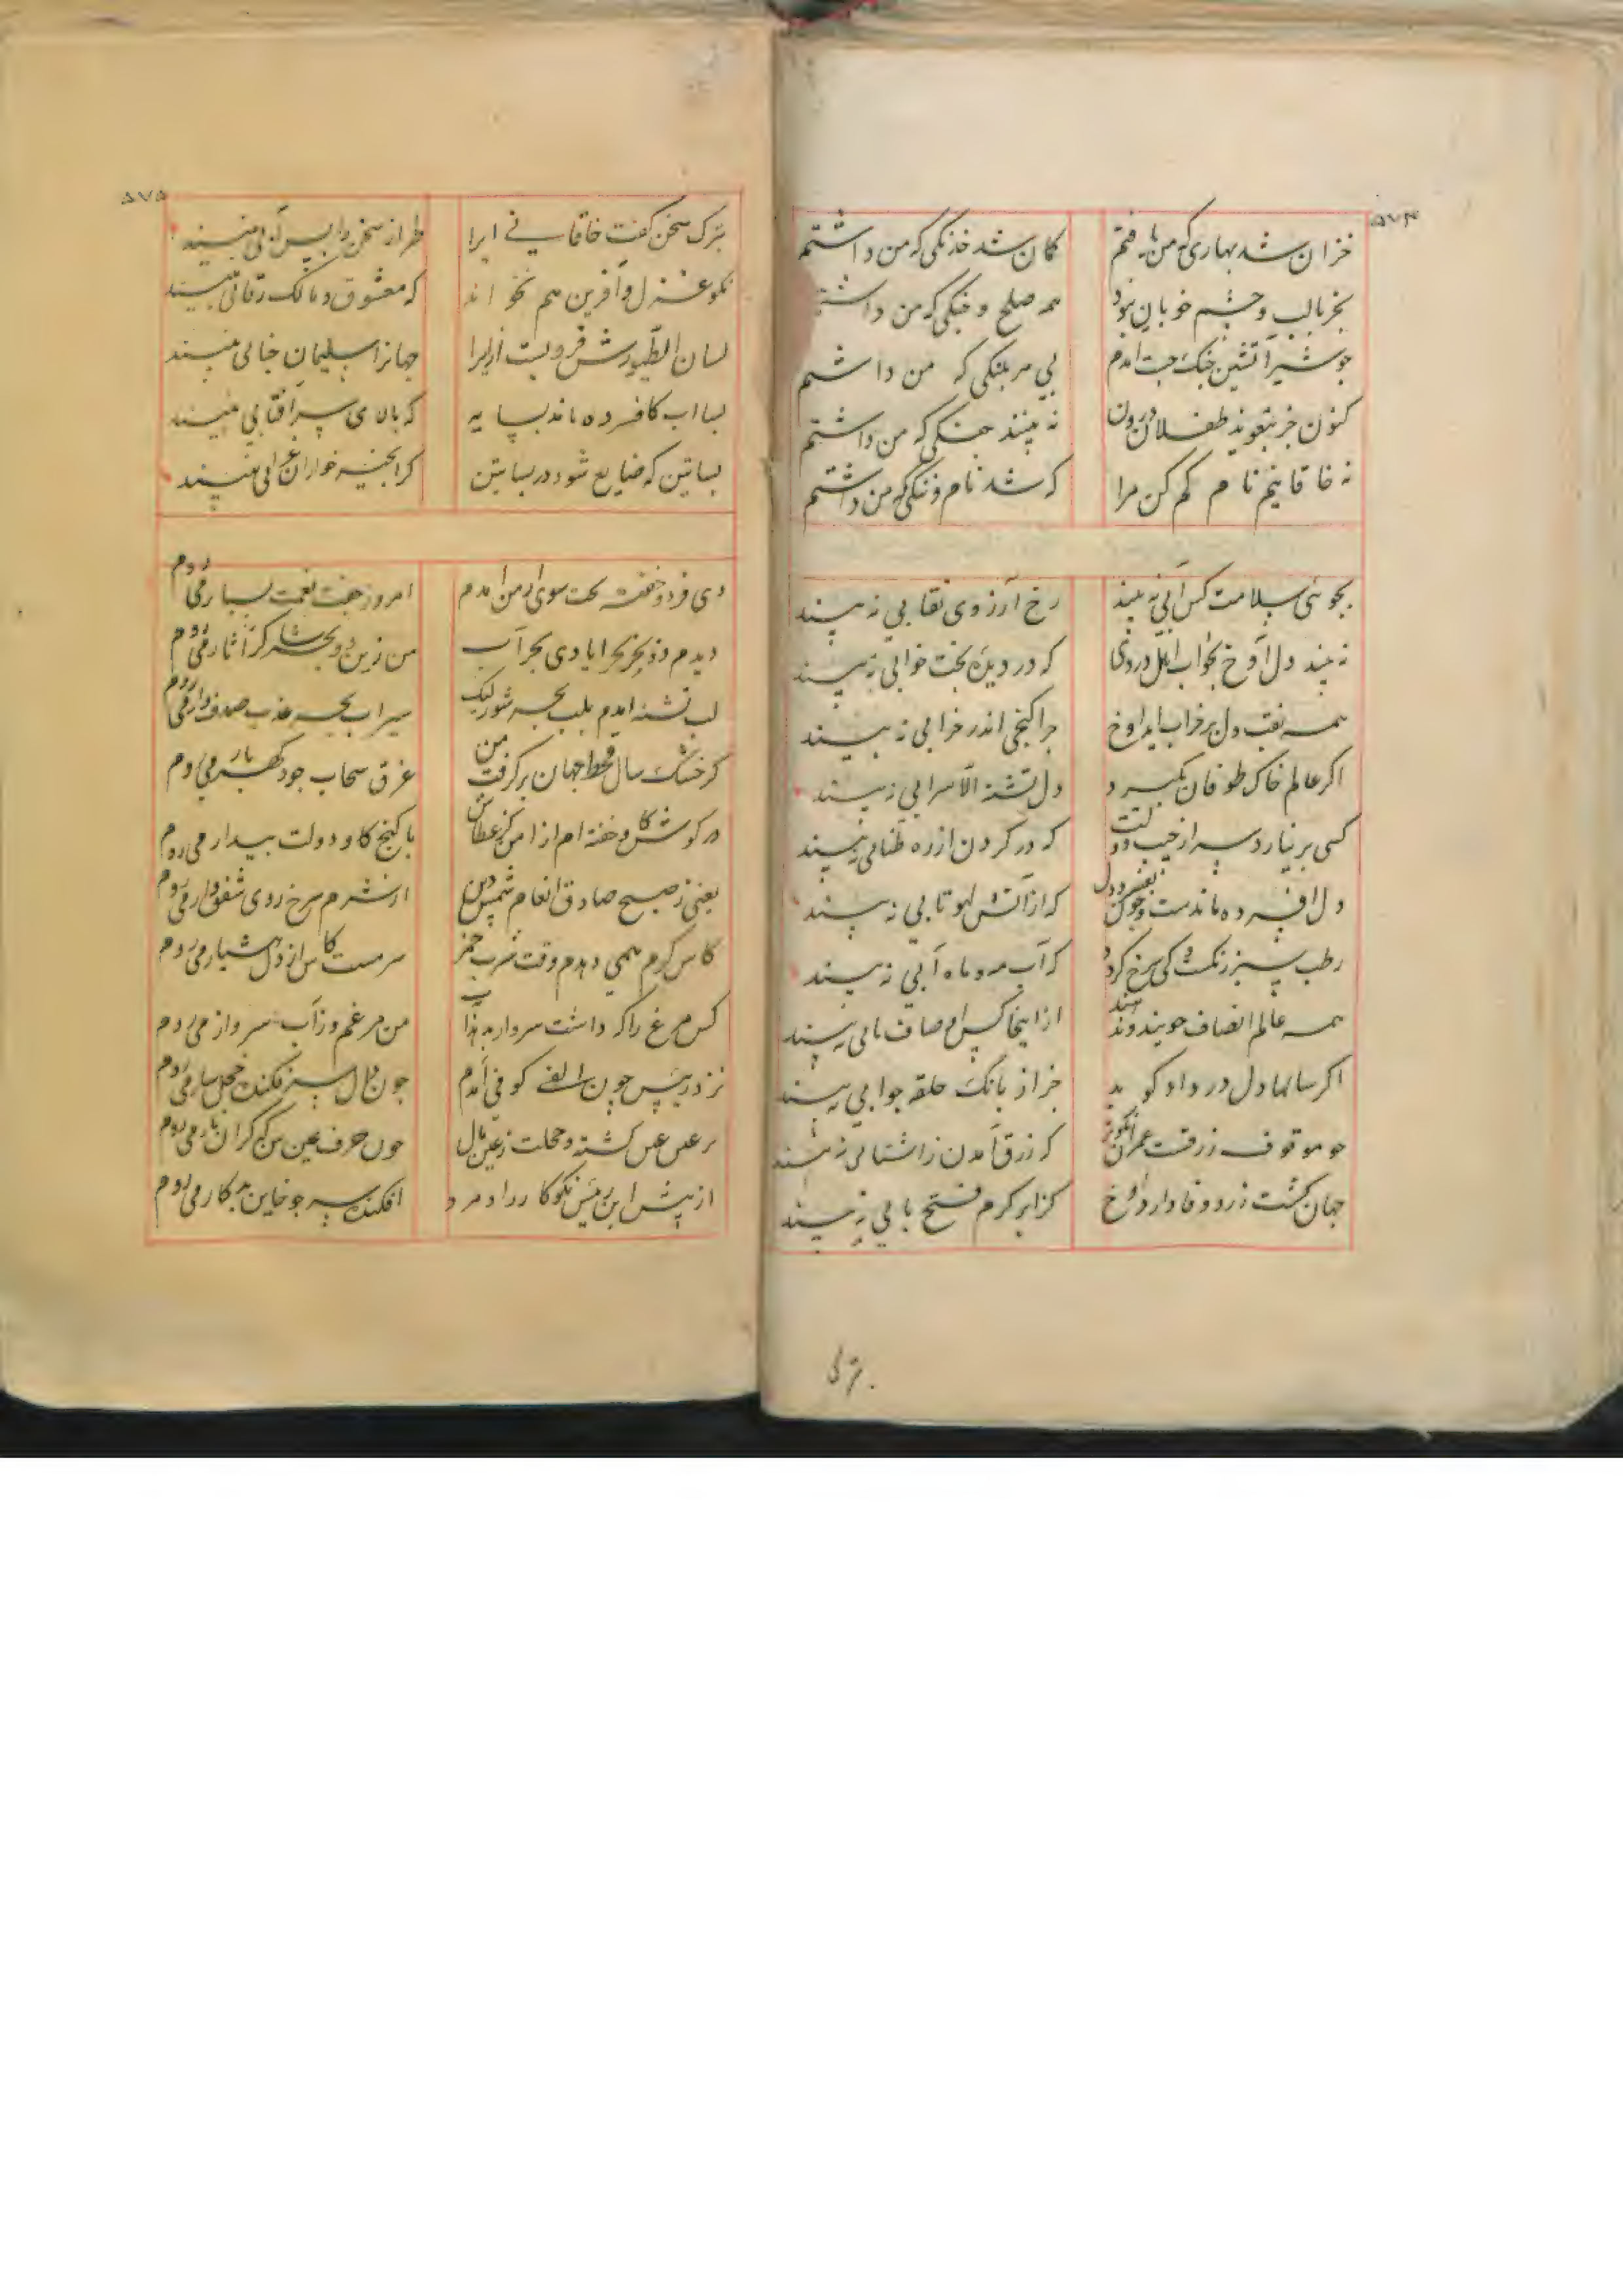 ۵۷۴
خزان شد بهاری که من یافتم کمان شد خدنگی که من داشتم
بجز بالب و چشم خوبان نبود همه صلح و جنکی که من داشتم
چو شیر آتشین جنک جست آمدم پی هر پلنکی که من داشتم
کنون جز بتعویذ طفلان درون نه بینند جنکی که من داشتم
نه خاقانیم نام کم کن مرا که شد نام و ننکی که من داشتم
بجوئی سلامت کس آبی نه بیند رخ آرزوی نقابی نه بیند
نه بیند دل آوخ بخواب اهل دردی که در دیده بخت خوابی نه بیند
همه نقب دل بر خراب آید آوخ چرا کنجی اندر خرابی نه بیند
اکر عالم خاک طوفان بکیرد دل تشنه الا سرابی نه بیند
کسی برنیارد سر از جیب دولت که در کردن از زه طنابی نه بیند
دل افسرده ماندست چون نفسرد دل که از آتش لهو تابی نه بیند
رطب سبز رنکست کی سرخ کردد که آب مه و ماه آبی نه بیند
همه عالم انصاف جویند و ندهند از اینجا کس انصاف یابی نه بیند
اکر سالها دل در داد کوبد جز از بانک حلقه جوابی نه بیند
چو موقوف رزقست عمر آن نکوتر که رزق آمدن را شتابی نه بیند
جهان کشت زرد وفا دارد آوخ کز ابر کرم فتح بابی نه بیند
بزرک
۵۷۵
بزرک سخن کفت خاقانی ایرا طراز سخن را بس آبی نبیند
نکو غزل و آفرین هم نخواند که معشوق و مالک رقابی نبیند
لسان الطیورش فروبست ازیرا جهانرا سلیمان جنابی نبیند
لسا اب کافسرده ماند بسایه که بالای سر آفتابی نبیند
بساتین که ضایع شود در بساتین کز انجیرخواران غرابی نبیند
دی فرد و خفته بخت سوی ارمن آمدم امروز جفت نعمت بسیار می روم
دیدم دو بحر بحر ایادی بحر آب من زین دو بحر شاکر آثار می روم
لب تشنه آمدم بلب بحر شور لیک سیراب بحر عذب صدف وار می روم
کر خشک سال قحط جهان برکرفت من غرق سحاب جود کهر بار می روم
در کوش کاو خفته ام از امن کز عطاش با کنج کاو و دولت بیدار می روم
یعنی ز صبح صادق انعام شمس دین از شرم سرخ روی شفق وار می روم
کاس کرم همی دهدم وقت شرب خمر سرمست کاس از دل هشیار می روم
کس مرغ را که داشت سر واردهد آب من مرغم و ز آب سر واز می روم
نزد رئیس چون الف کوفی آمدم چون دال سرفکنده خجل سار می روم
بر عین عین کشته و خجلت ز عین مال چون حرف عین سر که کران بار می روم
از پیش این رئیس نکوکار راد مرد افکنده سر چو خاین بدکار می روم